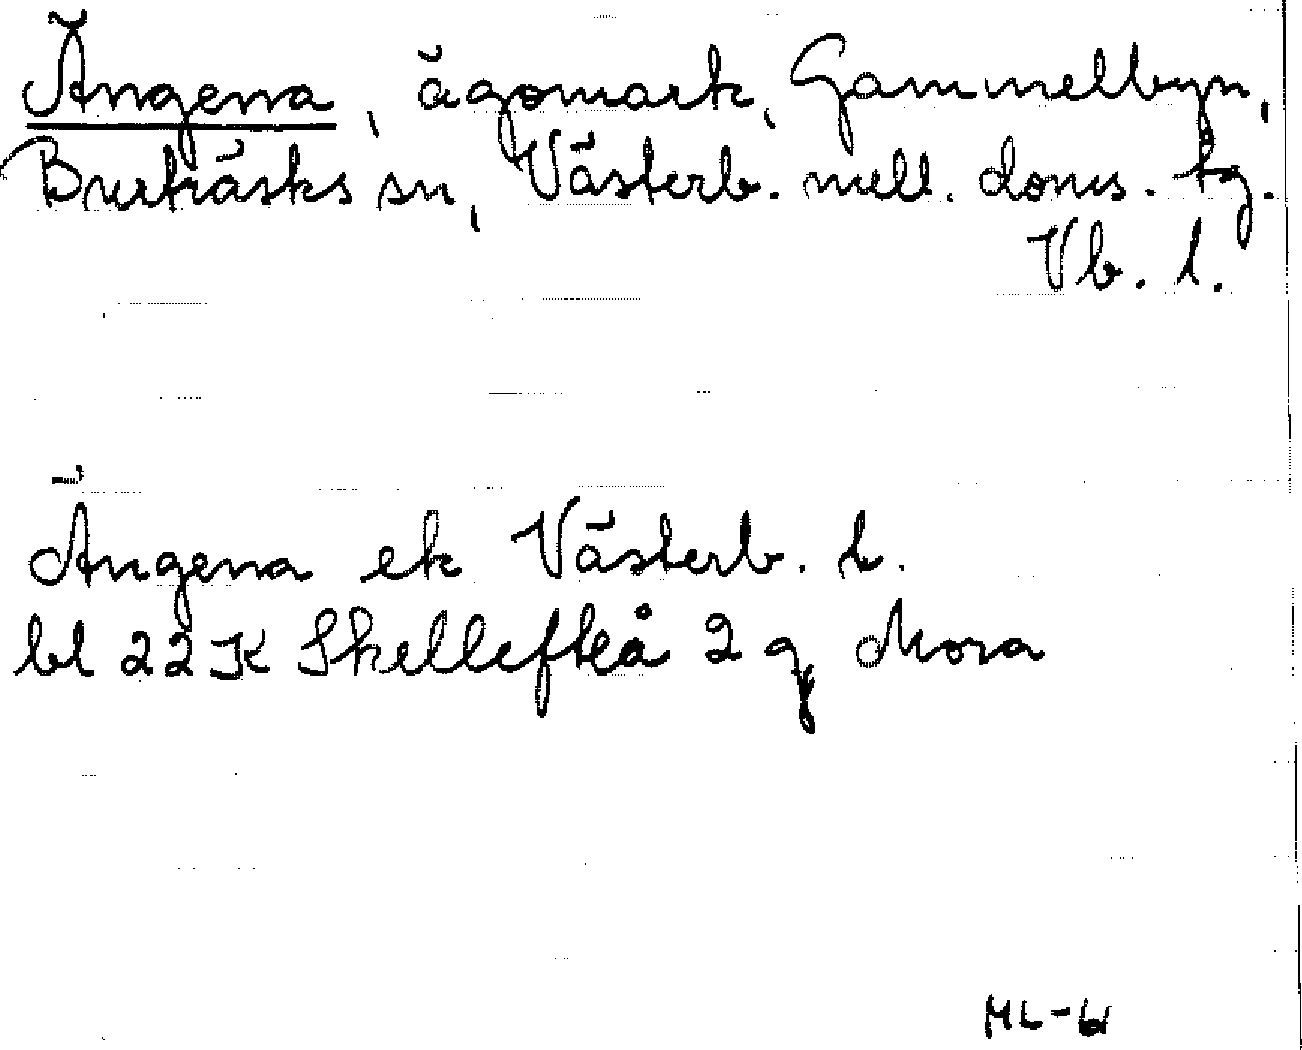 Ängena, ägomark, Gammelbyn,
Burträsks sn, Västerb. mell. doms. tg.
Vb. l.
Ängena ek Västerb. l.
bl 22K Skellefteå 2 g Mora